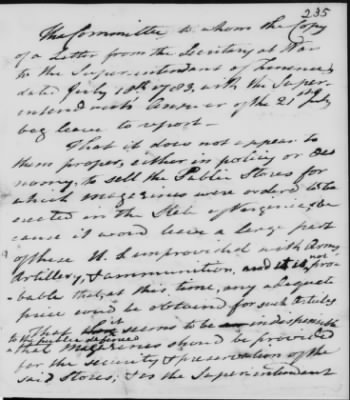 235
The Committee to whom the Copy
of a Letter from the Secretary at War
to the Superintendant of Finance,
dated July 18th 1783, with the Super-
intendants Answer of the 21st
beg leave to report—
That it does not appear to
them proper, either in policy or Oeco
nomy, to sell the Public Stores for
which Magazines were ordered to be
erected in the State of Virginia, be
cause it would leave a large part
of these U. S. unprovided with Army
Artillery, & ammunition, and it is not pro-
bable that, at this time, any adequate
price would be obtained for such Articles
That it seems to be indispensible
to the public defence
that Magazines should be provided
for the security & preservation of the
said Stores, & as the Superintendant